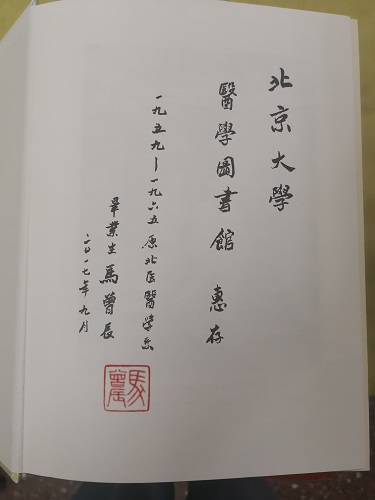 北京大學
醫學圖書館 惠存
一九五九—一九六五原北医醫學系
畢業生馬曾長
二〇一七年九月